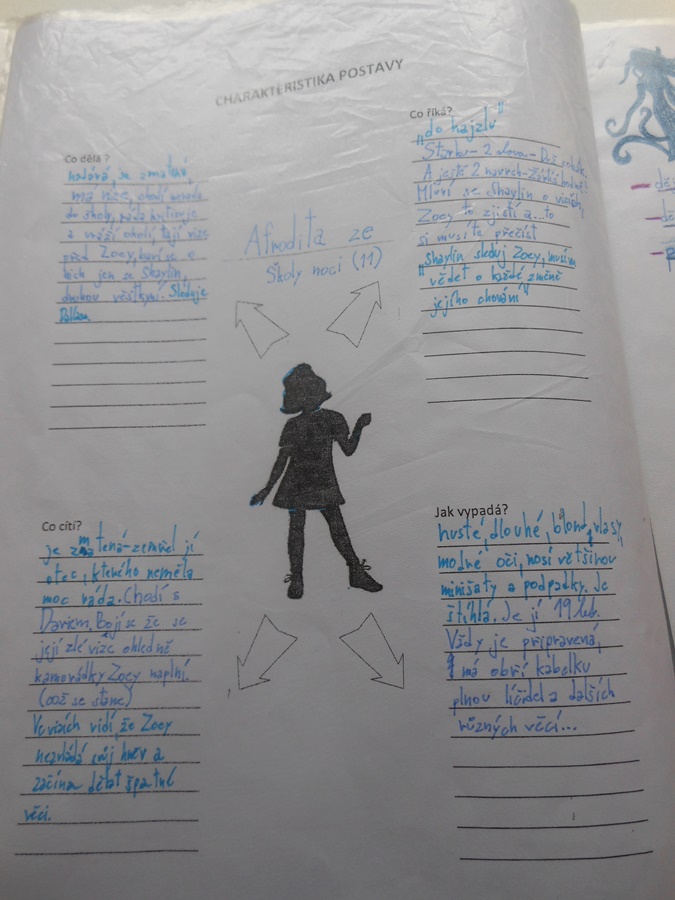 CHARAKTERISTIKA POSTAVY
Co dělá ?
má vize, chodí
do školy, ráda kritizuje
a uráží okolí, tají vize
před Zoey, baví se o
nich jen se Shaylin,
druhou věštkyní. Sleduje
Dallase
Afrodita ze
Školy noci (11)
Co říká?
"do hajzlu"
Starku - 2 slova -
A ještě 2 navrch -
Mluví se Shaylin o vizích,
Zoey to zjistí a...to
si musíte přečíst
"Shaylin sleduj Zoey, musím
vědět o každé změně
jejího chování"
Co cítí?
je zmatená-zemřel jí
otec, kterého neměla
moc ráda. Chodí s
Dariem. Bojí se že se
její zlé vize ohledně
kamarádky Zoey naplní.
(což se stane)
Ve vizích vidí, že Zoey
nezvládá svůj hněv a
začíná dělat špatné
věci.
Jak vypadá?
husté, dlouhé, blond vlasy,
modré oči, nosí většinou
minišaty a podpadky. Je
štíhlá. Je jí 19 let.
Vždy je připravená,
má obří kabelku
plnou líčidel a dalších
různých věcí...